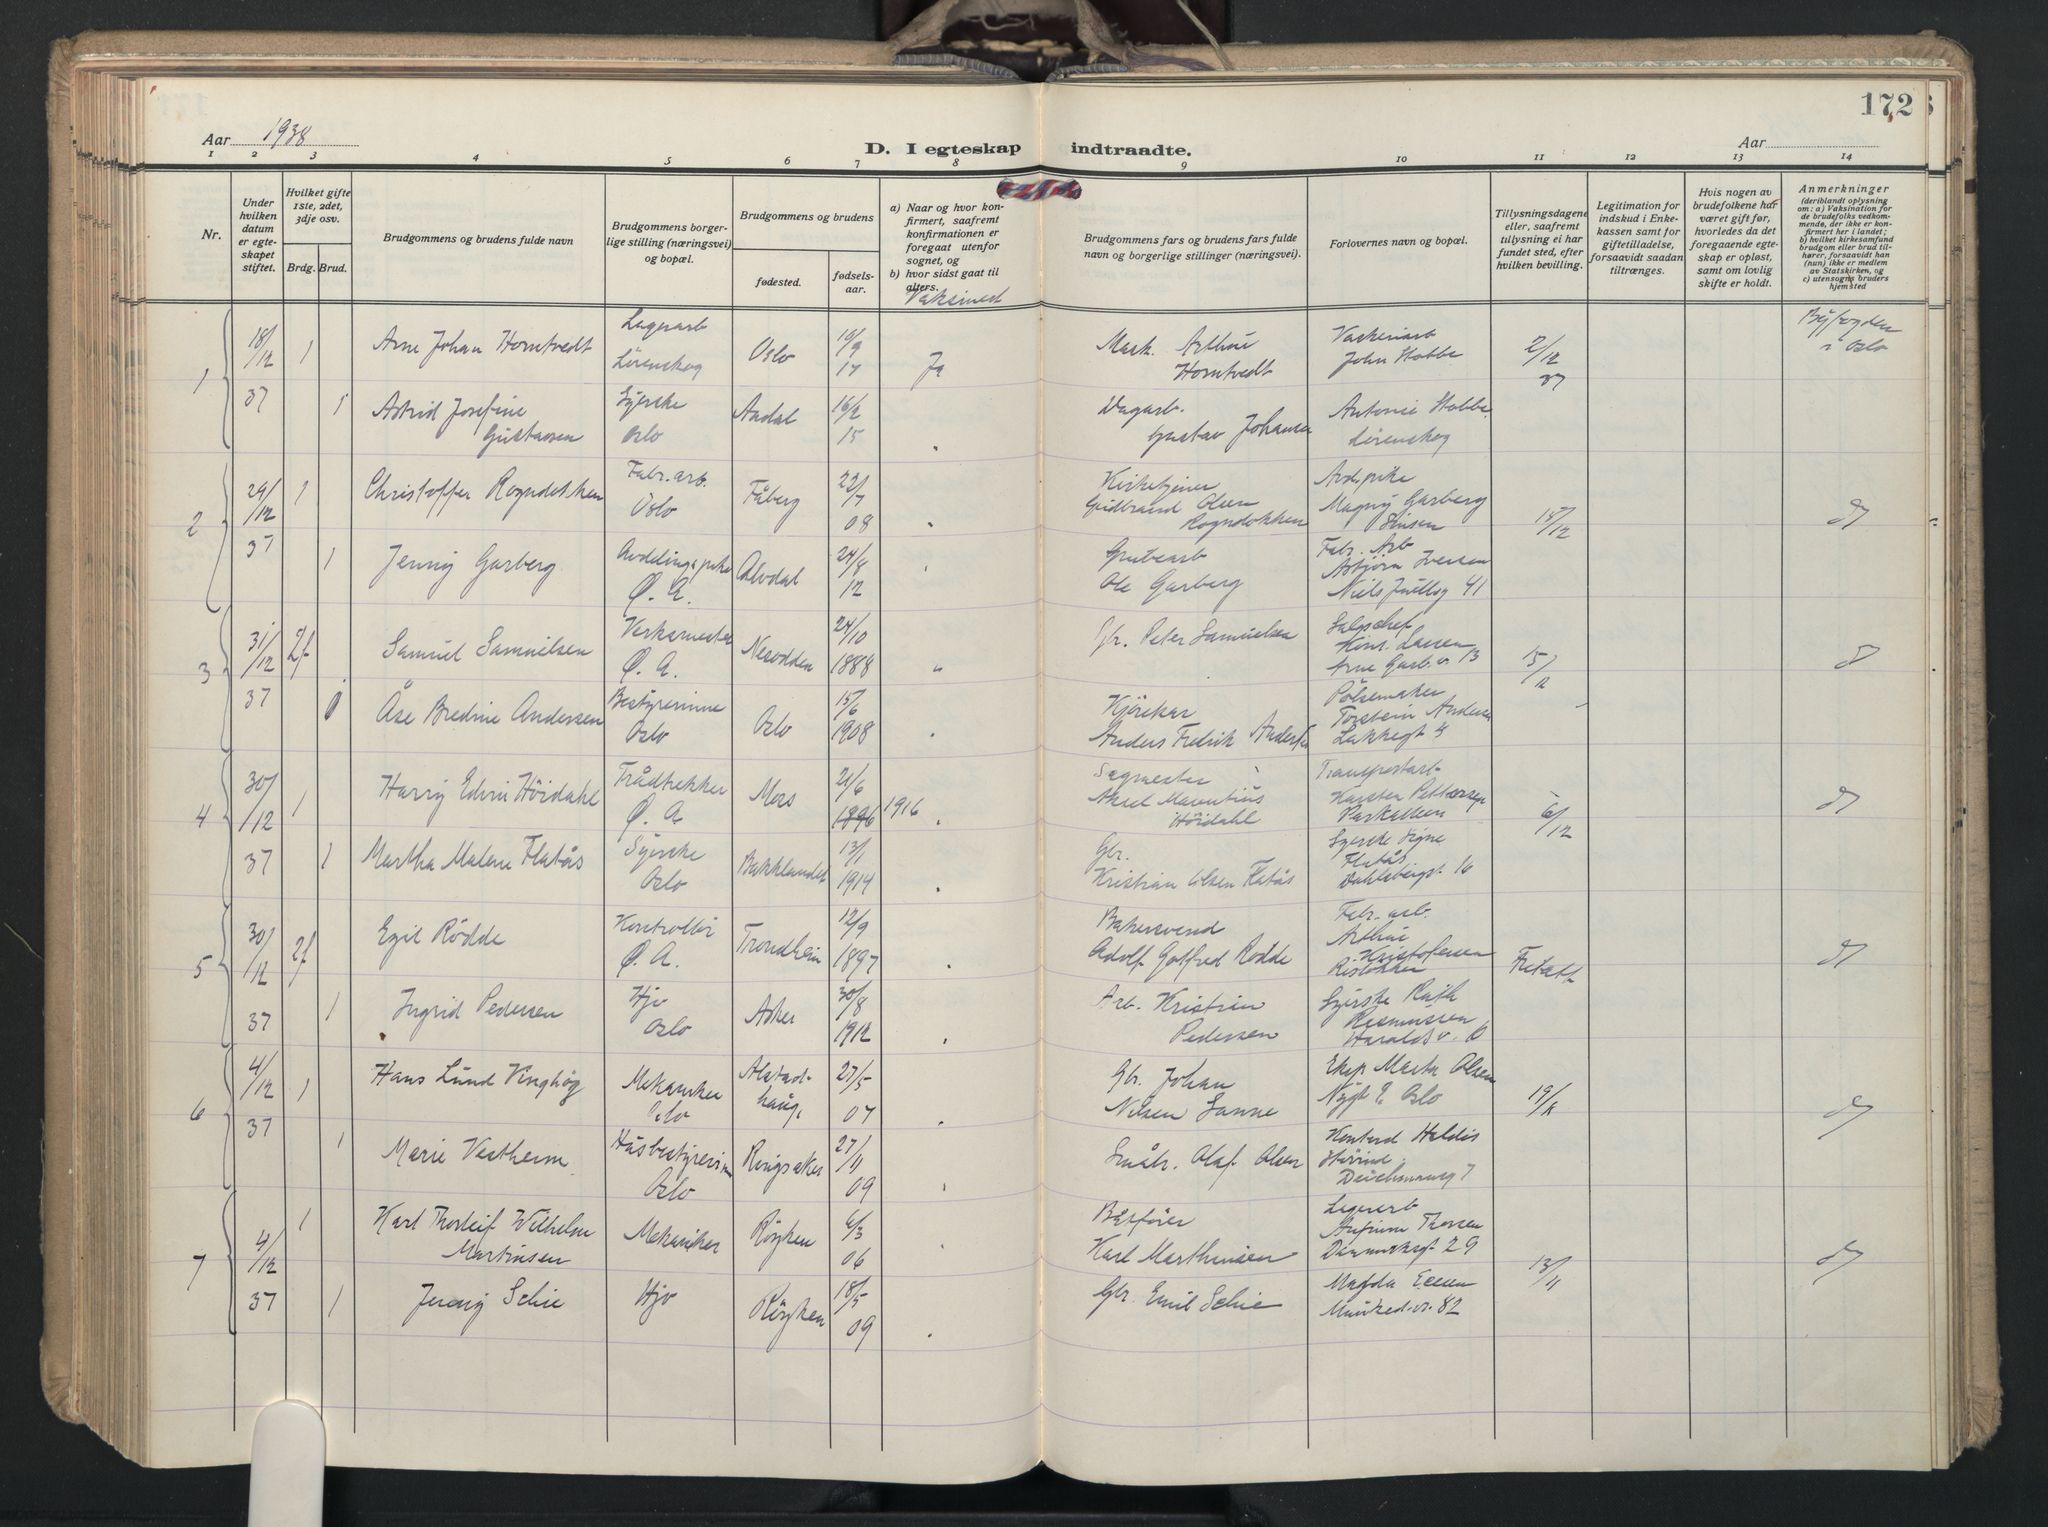 172
Aar 1938
D. I egteskap indtraadte.
Aar
1 2 3 4 5 6 7 8 9 10 11 12 13 14
Nr.
Under hvilken datum er egteskapet stiftet.
Hvilket gifte 1ste, 2det, 3dje osv.
Brdg. Brud.
Brudgommens og brudens fulde navn
Brudgommens borgerlige stilling (næringsvei) og bopæl.
Brudgommens og brudens
fødested.
fødselsaar.
a) Naar og hvor konfirmert, saafremt konfirmationen er foregaat utenfor sognet, og
b) hvor sidst gaat til alters.
Vaksinert
Brudgommens fars og brudens fars fulde navn og borgerlige stillinger (næringsvei).
Forlovernes navn og bopæl.
Tillysningsdagene eller, saafremt tillysning ei har fundet sted, efter hvilken bevilling.
Legitimation for indskud i Enkekassen samt for giftetilladelse, forsaavidt saadan tiltrænges.
Hvis nogen av brudefolkene har været gift før, hvorledes da det foregaaende egteskap er opløst, samt om lovlig skifte er holdt.
Anmerkninger
(deriblandt oplysning om: a) Vaksination for de brudefolks vedkommende, der ikke er konfirmert her i landet; b) hvilket kirkesamfund brudgom eller brud tilhører, forsaavidt han (hun) ikke er medlem av Statskirken, og c) utensogns bruders hjemsted
1 18/12 37 1 Arne Johan Horntvedt Lagerarb Lørenskog Oslo 10/9 17 Ja Mask. Arthur Horntvedt John Stobbe 2/12 37 Byfogden i Oslo
1 Astrid Josefine Gustavsen Syerske Oslo 16/2 15 Gustav Johansen Antonie Stobbe Lørenskog
2 29/12 37 1 Christoffer Rogndokken Fabr. arb. Oslo Fåberg 22/7 08 Kirketjener Gudbrand Olsen Rogndokken Magny Garberg 15/12
1 Jenny Garberg Avdelingspike Ø. A. Alvdal 24/8 12 Grubearb Ole Garberg Fabr. Arb Asbjørn Iversen Niels Juelsg 41
3 31/12 37 2f Samuel Samuelsen Verksmester Ø. A. Nesodden 24/10 1888 Gbr. Peter Samuelsen Salgschef Larsen Arne Garb. v. 13 15/12
Åse Bredine Andersen Bestyrerinne Oslo Oslo 15/6 1908 Kjørekar Anders Fredrik Andersen Pølsemaker Torstein Andersen Lakkegt 4
4 30/12 37 1 Harry Edvin Höidahl Trådtrekker Ø. A. Moss 21/6 1896 1916 Sagmester Aksel Höidahl Transportarb. Karsten Pettersen Parkalleen 6/12
1 Martha Malene Flatås Syerske Oslo Bakklandet 13/1 1914 Gbr. Kristian Olsen Flatås Syerske Signe Flatås Dahlsbergst. 16
5 30/12 37 2f Egil Rødde Kontrollør Ø. A. Trondheim 12/9 1897 Bakersvend Adolf Gotfred Rødde Fabr. arb. Arthur Kristofersen Risløkken Fritatt
1 Ingrid Pedersen Hjv Oslo Asker 30/8 1912 Arb. Kristian Pedersen Syerske Ruth Rasmussen Haralds v. 6
6 4/12 37 1 Hans Lund Vinghög Mekaniker Oslo Alstadhaug. 27/5 07 Gbr. Johan Nilsen Sanne Eksp Marta Olsen Nygt 2 Oslo 19/11
1 Marie Vestheim Husbestyrerin Oslo Ringsaker 27/11 09 Småbr. Olaf Olsen Deichmansg 7
7 4/12 37 1 Karl Thorleif Wilhelm Martinsen Mekaniker Røyken 6/3 06 Båtfører Karl Marthinsen Lagerarb Thorsen Danmarksgt. 29 13/11
1 Jenny Schie Hjv Røyken 18/5 09 Gbr. Emil Schie Magda Munked.v. 82